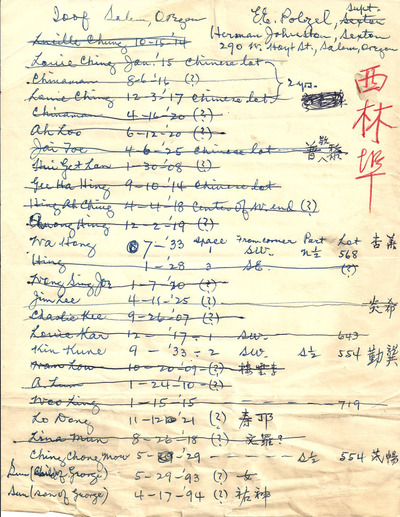 Ioof Salem, Oregon
E.E. Polzel, Supt. Sexton
(Herman Johnston, Sexton
290 W. Hoyt St., Salem, Oregon
Lucille Chung 10-15-'14
Louie Ching Jan. '15 Chinese lot
Chinaman 8-6-'16 (?)
Louie Ching 12-3-'17 Chinese lot
西林埠
Chinaman 4-16-20 (?)
Ah Loo 6-12-20 (?)
Jai Foe 4-6-'25 Chinese lot
Lan 1-30-'08 (?)
Gee Ha Hing 9-10-'14 Chinese lot
Hing Ah Chung 4-11-'18 Center of W. end (?)
Hing 12-2-19 (?)
Wa Hong 7-'33 space From corner Part Lot
1 SW. N½ 568
Hing 1-28 3 SE. (?)
Wong Sing Joz 1-7-20 (?)
Jim Lee 4-11-'25 (?)
Charlie Kee 9-26-'07 (?)
Louie Kar 12-'17-1 SW. 643
Kin Kune 9-'33-2 SW. S½ 554
Fran Low 10-20-09 (?)
A. Lum 1-24-10 (?)
Woo Ling 1-15-15 719
Lo Dong 11-12-'21 (?)
Lina Mun 8-26-'18 (?)
Ching Chong Mow 5-29 S½ 554
Sun (Child of George) 5-29-'93 (?) 女
Sun (son of George) 4-17-'94 (?) 祐神